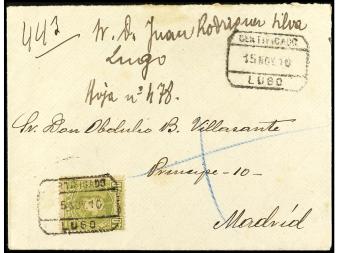 443 / N. D. Juan Rodriguez Silva
Lugo
Hoja nº 478.
CERTIFICADO
15 NOV 10
LUGO
Sr. Don Obdulio B. Villasante
Principe-10-
Madrid
CERTIFICADO
15 NOV 10
LUGO